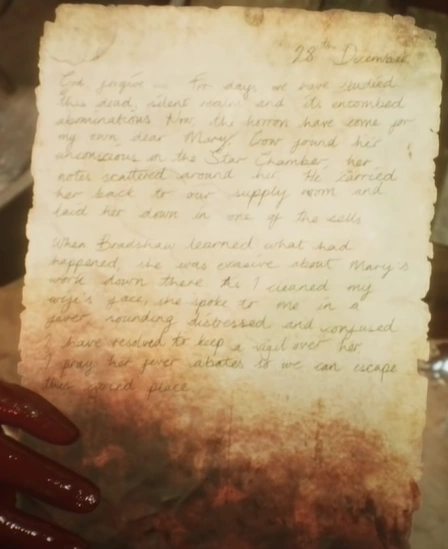 28th December
God forgive us. For days, we have studied
this dead, silent realm and its entombed
abominations. Now, the horrors have come for
my own dear Mary. Crow found her
unconscious in the Star Chamber, her
notes scattered around her. He carried
her back to our supply room and
laid her down in one of the cells.
When Bradshaw learned what had
happened, she was evasive about Mary's
work down there. As I cleaned my
wife's face, she spoke to me in a
fever sounding distressed and confused.
I have resolved to keep a vigil over her.
I pray her fever abates so we can escape
this place